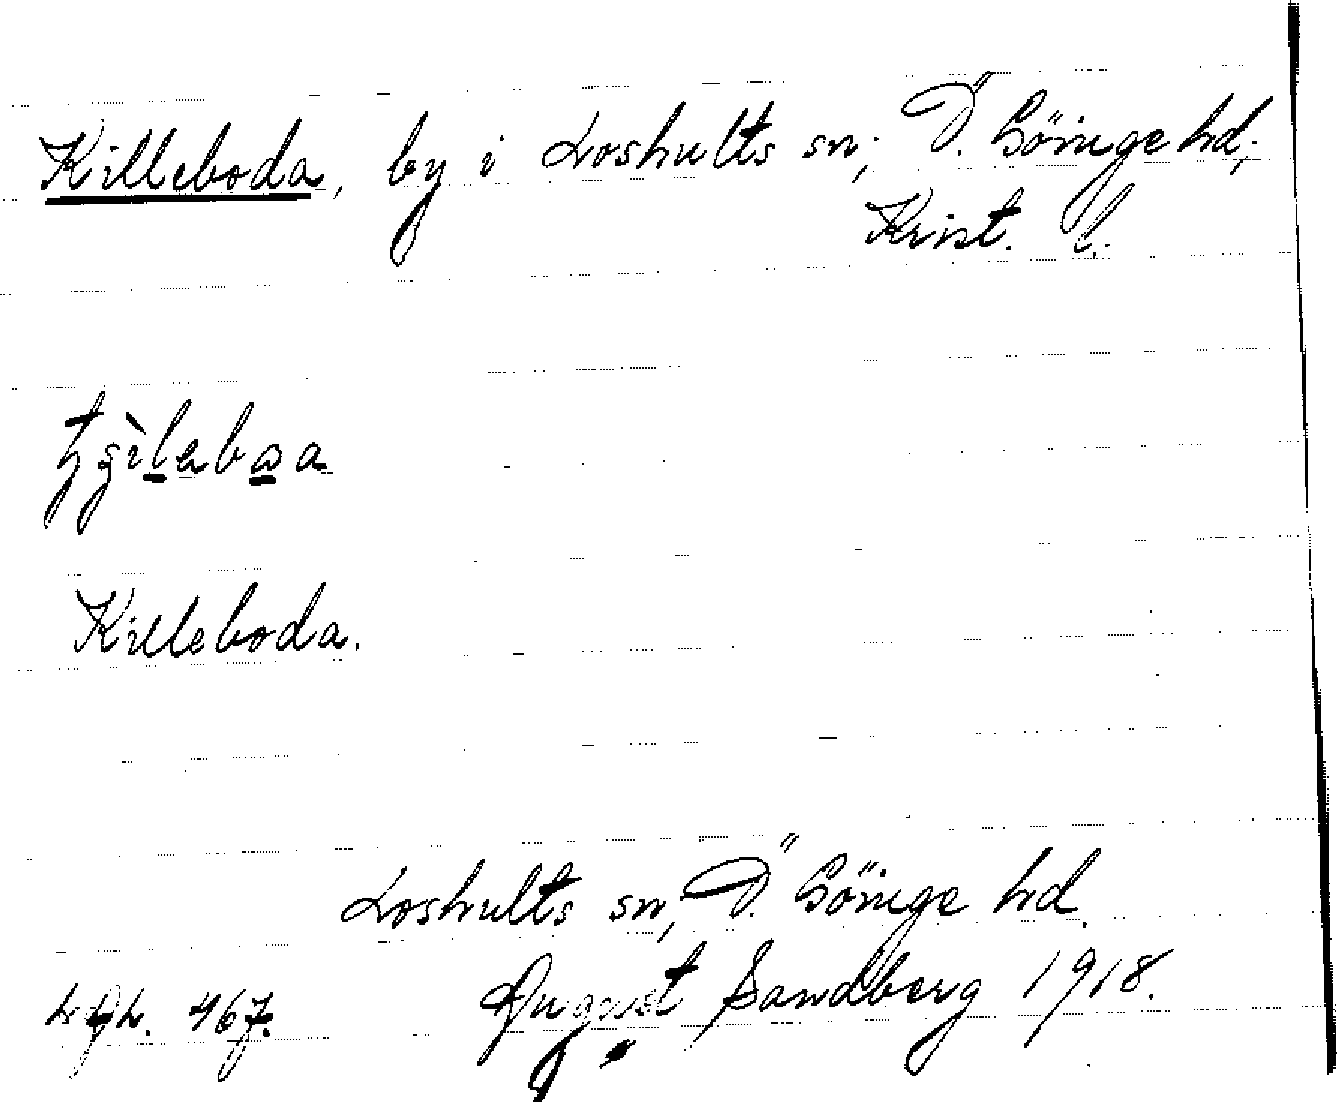 Killeboda, by i Loshults sn, Ö. Göinge hd,
Krist. l.
Killeboda.
Loshults sn, Ö. Göinge hd.
August Sandberg 1918.
467.